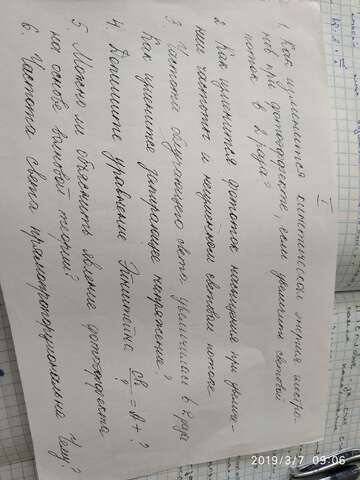 I
1. Как изменится кинетическая энергия электро-
нов при фотоэффекте, если увеличить световой
поток в 2 раза?
2. Как изменится фототок насыщения при увеличе-
нии частоты и неизменном световом потоке
3. Частота облучающего света увеличилась в 2 раза
Как изменится запирающее напряжение?
4. Допишите уравнение Эйнштейна = A + ?
?
5. Можно ли объяснить явление фотоэффекта
на основе волновой теории?
6. Частота света прямопропорциональна чему?
2019/3/7 09:06